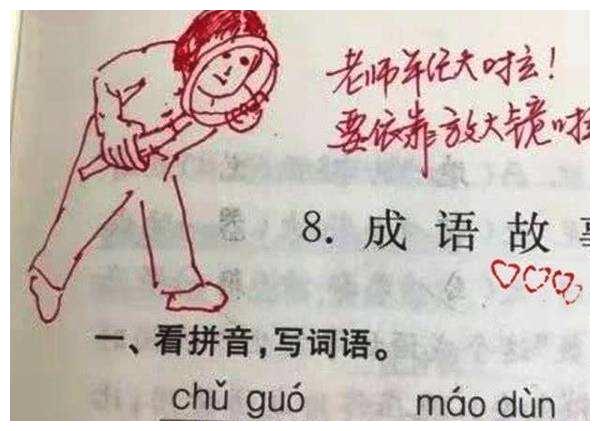 老师年纪大啦！
要依靠放大镜啦
8. 成语故事
一、看拼音,写词语。
chǔ guó máo dùn